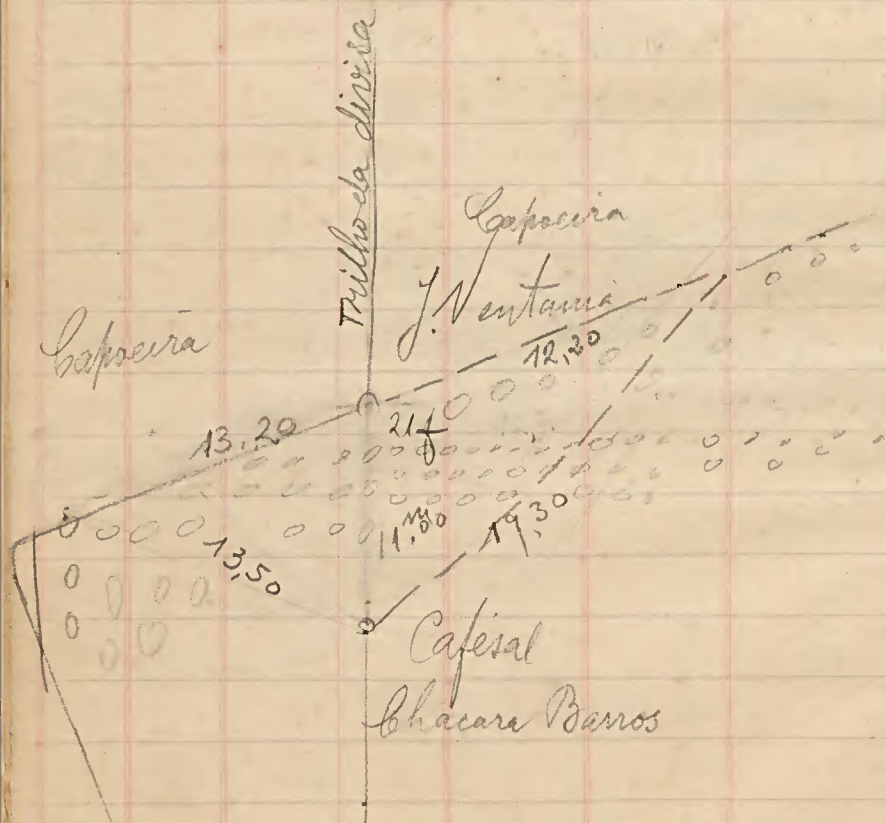 Trilho da divisa
Capoeira
J. Ventania
Capoeira
12,20
13,20
21f
11,m00
19,30
13,50
Cafésal
Chacara Barros